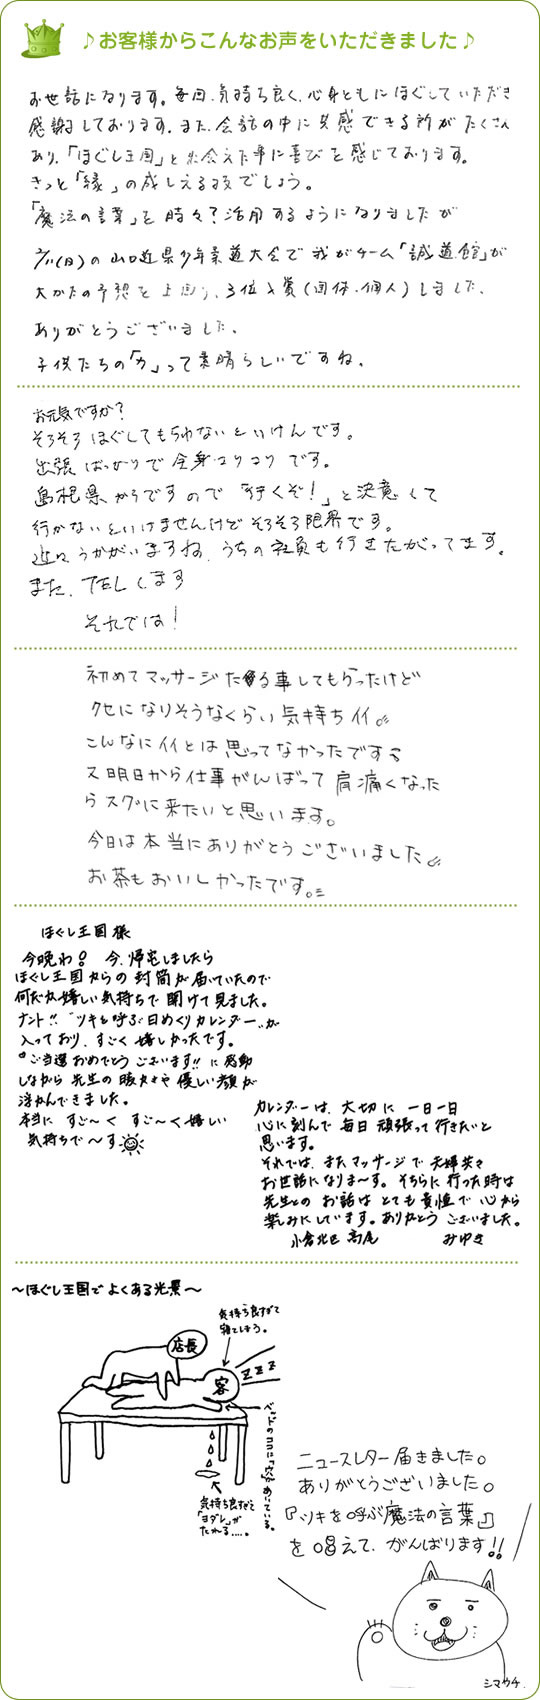 ♪お客様からこんなお声をいただきました♪
お世話になります。毎回、気持ち良く、心身ともにほぐしていただき
感謝しております。また、会話の中に共感できる所がたくさん
あり、「ほぐし王国」と出会えた事に喜びを感じております。
きっと「縁」の成しえる技でしょう。
「魔法の言葉」を時々？活用するようになりましたが
(日)の山口近県少年柔道大会で我がチーム「誠道館」が
大かたの予想を上回り、3位入賞(団体・個人)しました、
ありがとうございました、
子供たちの「力」って素晴らしいですね、
お元気ですか？
そろそろほぐしてもらわないといけんです。
出張ばっかりで全身コリコリです。
島根県からですので「行くぞ！」と決意して
行かないといけませんけどそろそろ限界です。
近々うかがいますね、うちの社員も行きたがってます。
また、TELします
それでは！
初めてマッサージたる事してもらったけど
クセになりそうなくらい気持ちイイ。
こんなにイイとは思ってなかったです。
又明日から仕事がんばって肩痛くなった
らスグに来たいと思います。
今日は本当にありがとうございました。
お茶もおいしかったです。
ほぐし王国様
今晩わ！今、帰宅しましたら
ほぐし王国からの封筒が届いていたので
何だか嬉しい気持ちで開けて見ました。
ナント!!"ツキを呼ぶ日めくりカレンダー"が
入っており、すごく嬉しかったです。
"ご当選おめでとうございます!!に感動
しながら先生の暖かさや優しい顔が
浮かんできました。
本当にすご〜くすご〜く嬉しい
気持ちで〜す
カレンダーは、大切に一日一日
心に刻んで毎日頑張って行きたいと
思います。
それでは、またマッサージで夫婦共々
お世話になりま〜す。そちらに行った時は
先生とのお話はとても貴重で心から
楽しみにしています。ありがとうございました。
小倉北区 高尾 みゆき
〜ほぐし王国でよくある光景〜
気持ち良すぎて
寝てしまう。
店長
客
ZZZ
ベッドのココに「穴」があいている。
気持ち良すぎて
「ヨダレ」が
たれる……。
ニュースレター届きました。
ありがとうございました。
『ツキを呼ぶ魔法の言葉』
を唱えて、がんばります!!
シマウチ.